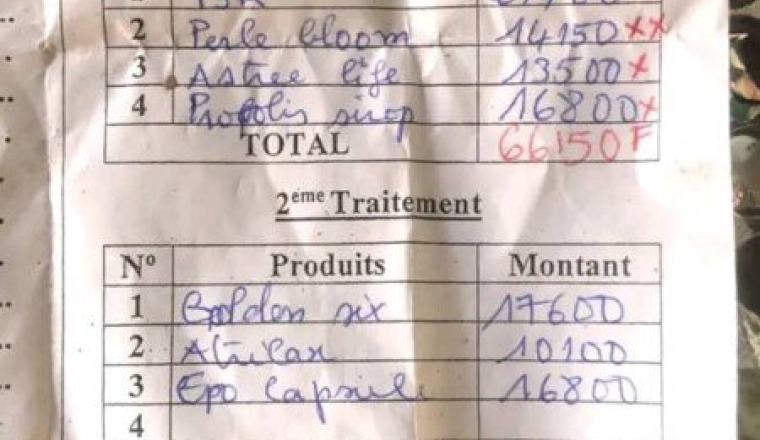 2 Perle bloom 14150 xx
3 Astree life 13500 x
4 Propolis sirop 16800 x
TOTAL 66150 F
2ème Traitement
N° Produits Montant
1 Golden six 17600
2 10100
3 Epo Capsule 16800
4